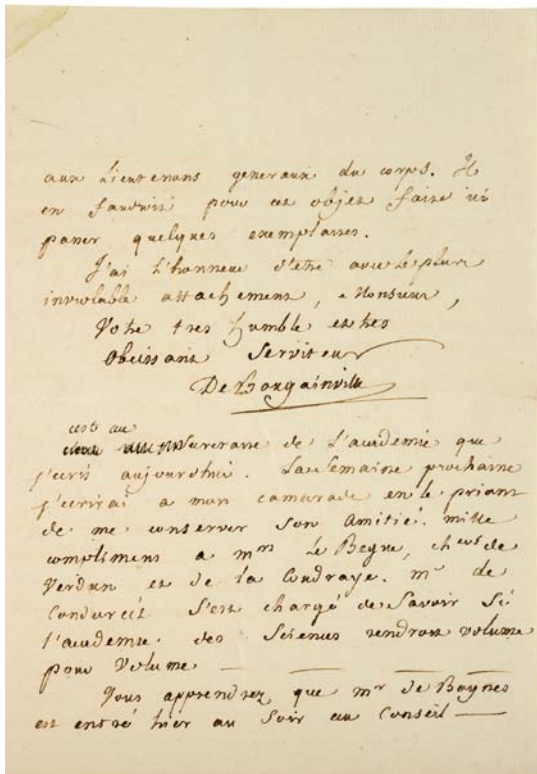 aux Lieutenans generaux du corps. Il
en faudroit pour cet objet faire ici
passer quelques exemplaires.
J'ai L'honneur d'etre avec le plus
inviolable attachement, Monsieur,
Votre tres humble et tres
Obeissant Serviteur
De Bougainville
cest au
secretaire de L'academie que
j'ecris aujourd'hui. La Semaine prochaine
j'ecrirai a mon camarade en le priant
de me conserver Son Amitié. mille
complimens a mrs Le Begue, cher de
Verdun et de la Coudraye. mr de
Condorcet S'est chargé de Savoir Si
l'academie des Sciences rendroit volume
pour Volume
Vous apprendrez que mr de Boynes
est entré hier au Soir au Conseil